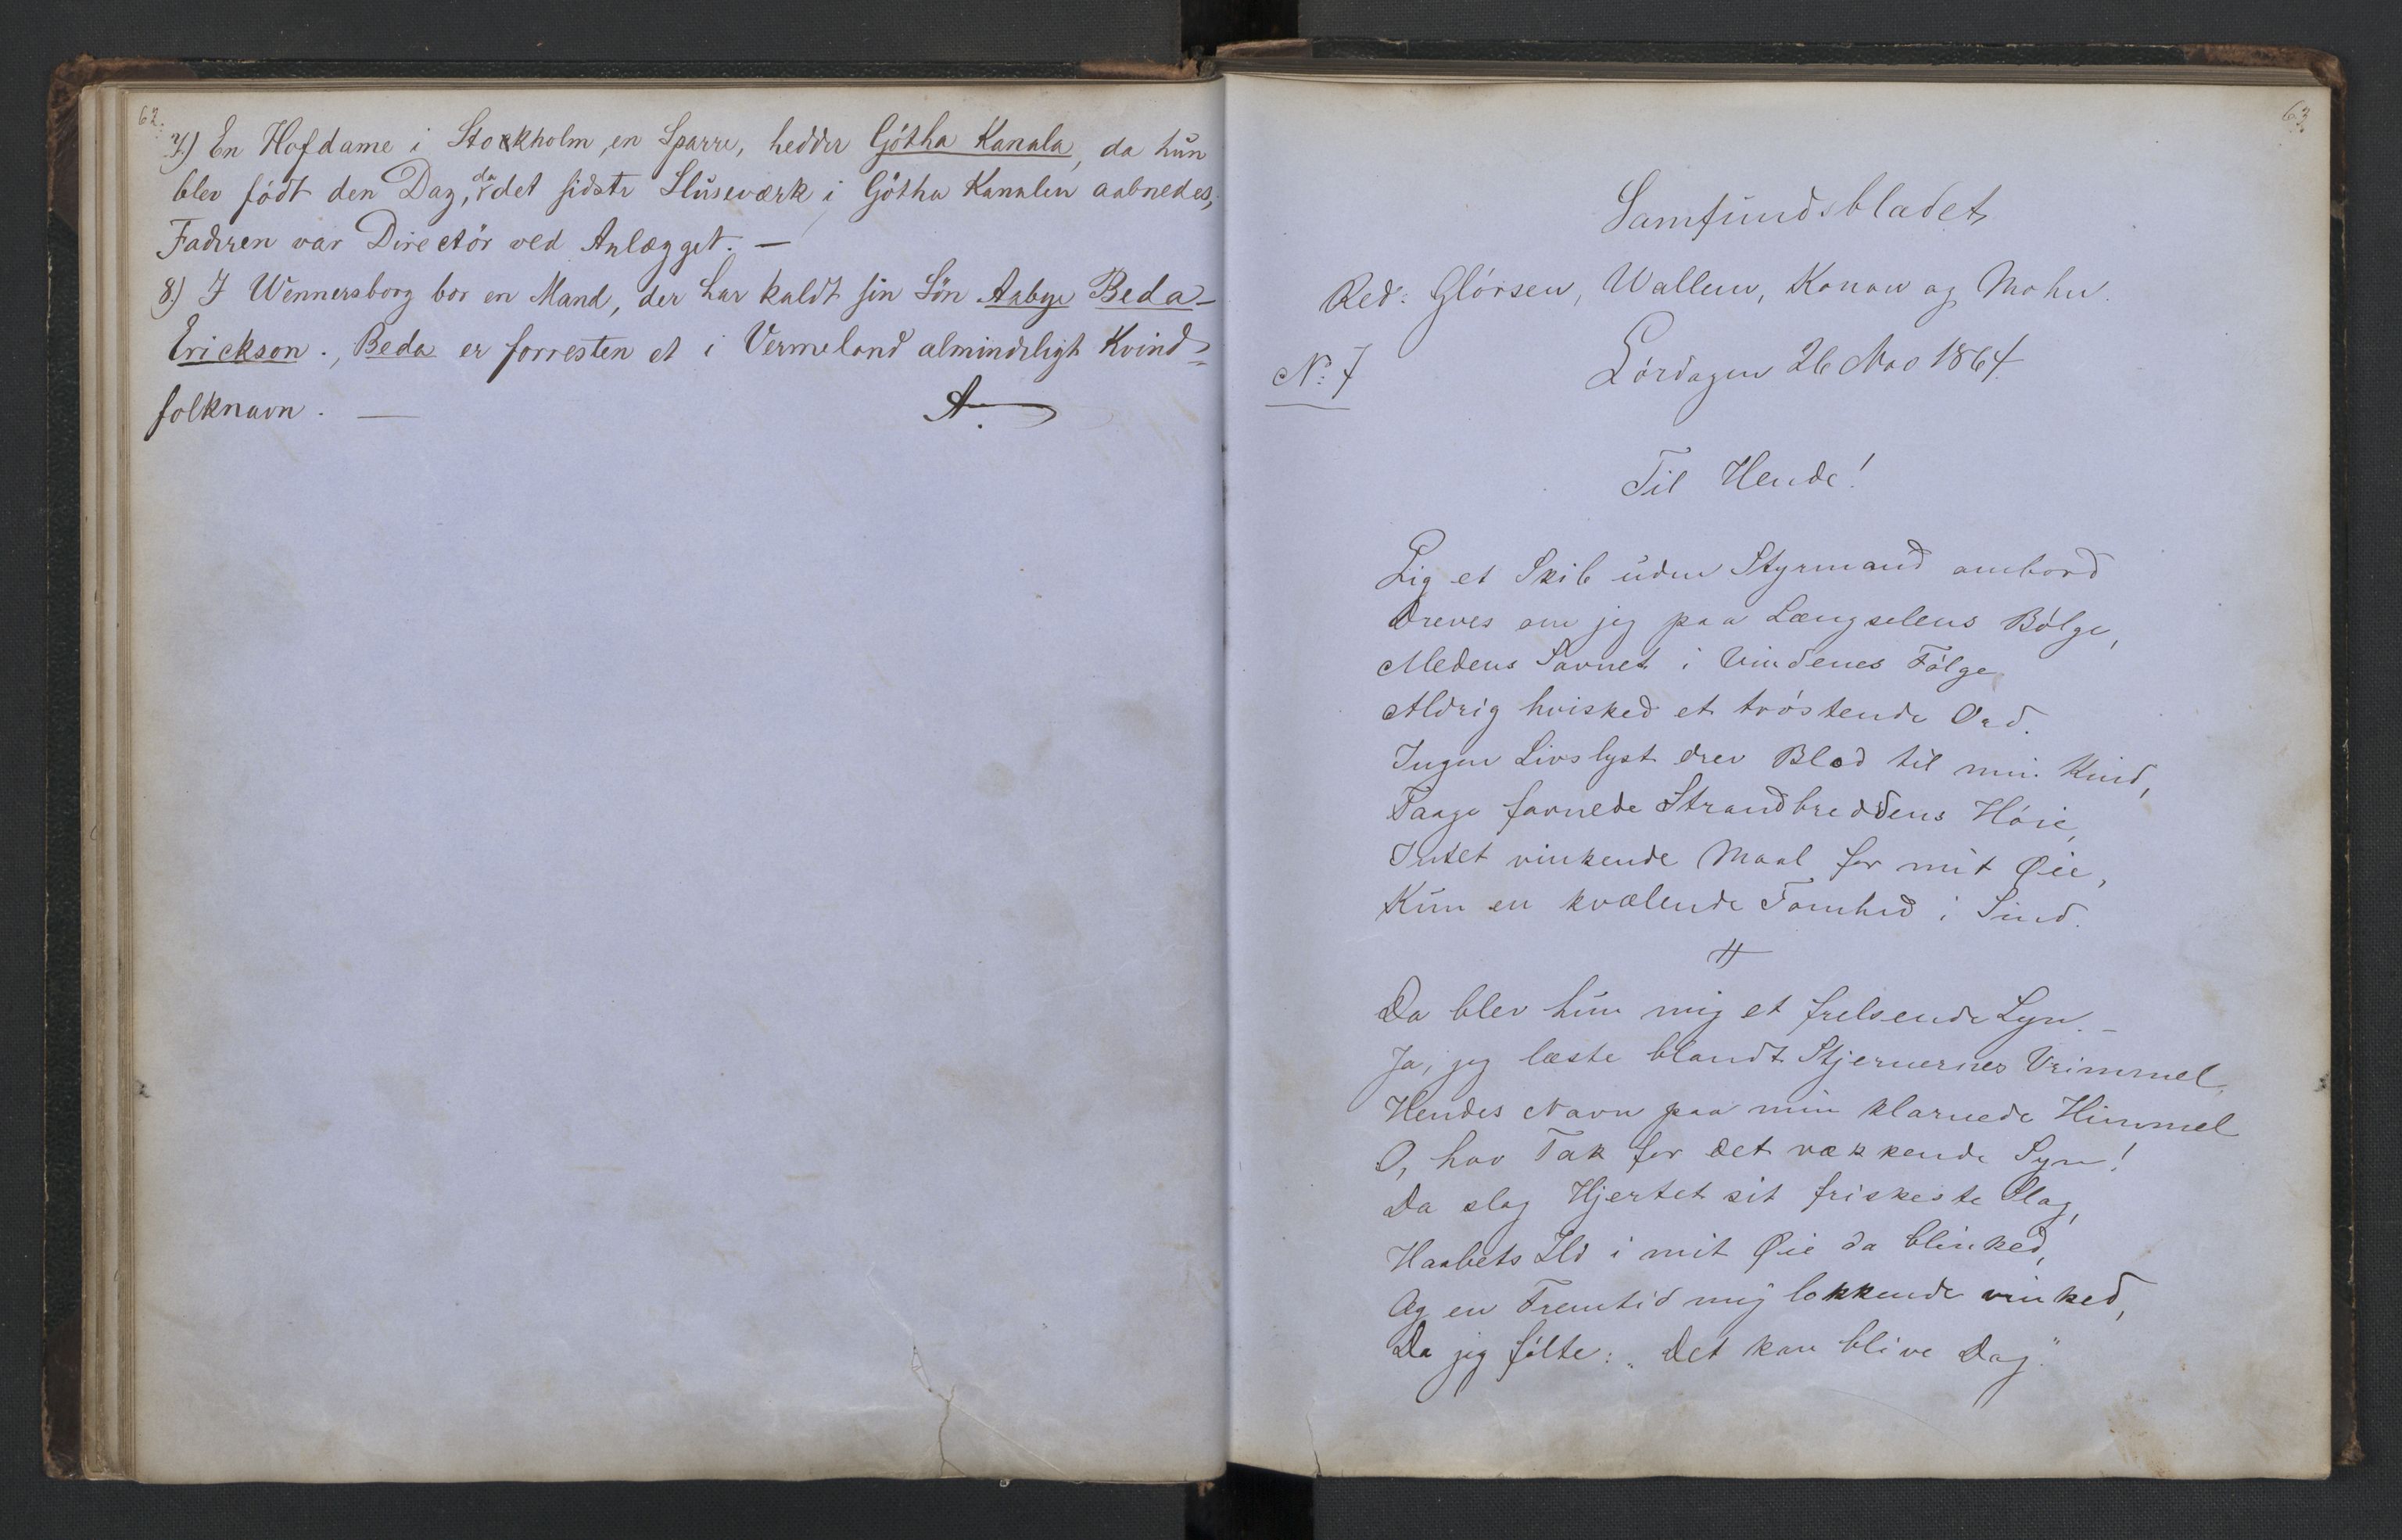 62.
7.) En Hofdame i Stockholm, en Sparre, hedder Götha Kanala, da hun
blev födt den Dag, da det sidste Sluseværk i Götha Kanalen aabnedes;
Faderen var Directör ved Anlægget. —
8.) I Wennersborg bor en Mand, der har kaldt sin Sön Aabye Beda-
Erickson., Beda er forresten et i Vermeland almindeligt Kvind=
folknavn. —
A.
63.
Samfundsbladet
Red: Glörsen, Wallem, Konow og Mohn.
No: 7
Lördagen 26 Nov 1864.
Til Hende!
Lig et Skib uden Styrmand ombord
Dreves om jeg paa Længselens Bölge,
Medens Savnet i Vindenes Fölge
Aldrig hvisked et tröstende Ord.
Ingen Livslyst drev Blod til min Kind,
Taage favnede Strandbreddens Höie,
Intet vinkende Maal for mit Øie,
Kun en kvælende Tomhed i Sind.
Da blev hun mig et frelsende Lyn. –
Ja, jeg læste blandt Stjernernes Vrimmel
Hendes Navn paa min klarnede Himmel
O, hav Tak for det vækkende Syn!
Da slog Hjertet sit friskeste Slag,
Haabets Ild i mit Øie da blinked,
Og en Fremtid mig lokkende vinked,
Da jeg fölte: „Det kan blive Dag."